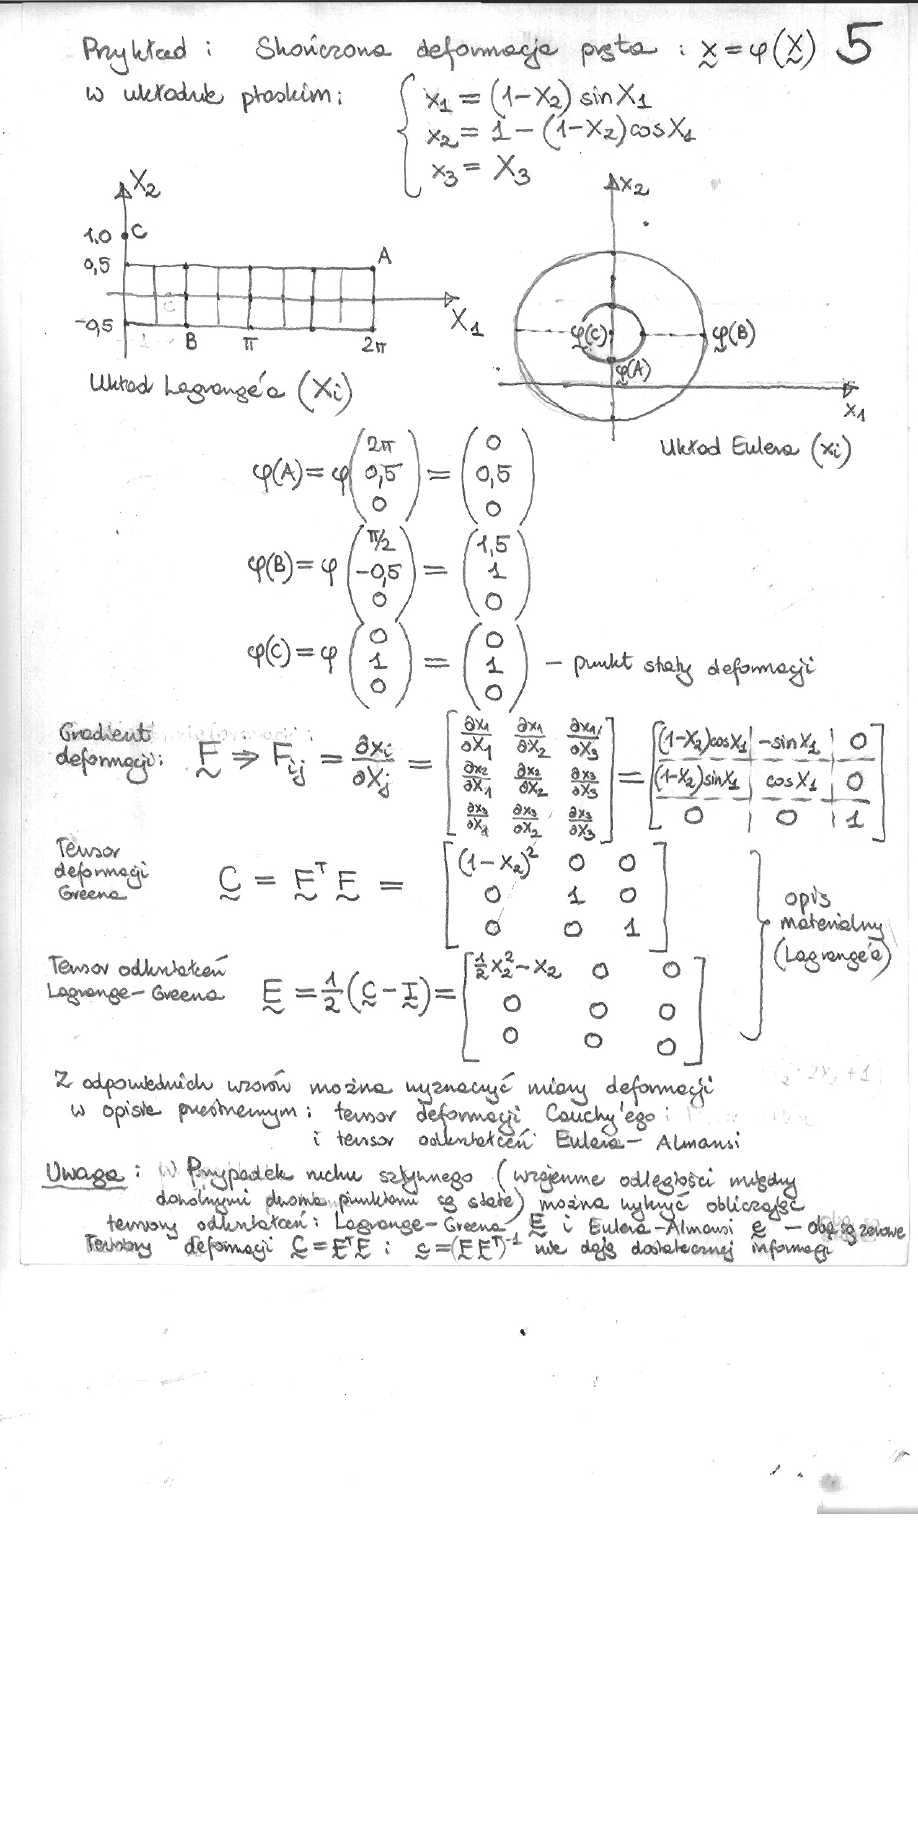 Przykład : Skończona deformacja pręta : x = φ(X) 5
w układzie płaskim :
x1 = (1-X2) sin X1
x2 = 1 - (1-X2) cos X1
x3 = X3
X2
1.0 C
0,5 A
-0,5 B π 2π X1
Układ Lagrange'a (Xi)
x2
φ(C) φ(B)
φ(A)
x1
Układ Eulera (xi)
φ(A) = φ (2π 0,5 0) = (0 0,5 0)
φ(B) = φ (π/2 -0,5 0) = (1,5 1 0)
φ(C) = φ (0 1 0) = (0 1 0) - punkt stały deformacji
Gradient
deformacji : F ⇒ Fij = ∂xi/∂Xj = [∂x1/∂X1 ∂x1/∂X2 ∂x1/∂X3 ; ∂x2/∂X1 ∂x2/∂X2 ∂x3/∂X3 ; ∂x3/∂X1 ∂x3/∂X2 ∂x3/∂X3] = [(1-X2)cosX1 | -sinX1 | 0 ; (1-X2)sinX1 | cosX1 | 0 ; 0 | 0 | 1]
Tensor
deformacji
Greena
C = F^T F = [(1-X2)^2 0 0 ; 0 1 0 ; 0 0 1]
opis
materialny
(Lagrange'a)
Tensor odkształceń
Lagrange-Greena E = 1/2 (C - I) = [1/2 X2^2 - X2 0 0 ; 0 0 0 ; 0 0 0]
Z odpowiednich wzorów można wyznaczyć miary deformacji
w opisie przestrzennym : tensor deformacji Cauchy'ego
i tensor odkształceń Eulera - Almansi
Uwaga : Przypadek ruchu sztywnego (wzajemne odległości między
dowolnymi dwoma punktami są stałe) można wykryć obliczając
tensory odkształceń : Lagrange-Greena E i Eulera-Almansi e - oba są zerowe
Tensory deformacji C = F^T F i c = (F F^T)^-1 nie dają dostatecznej informacji